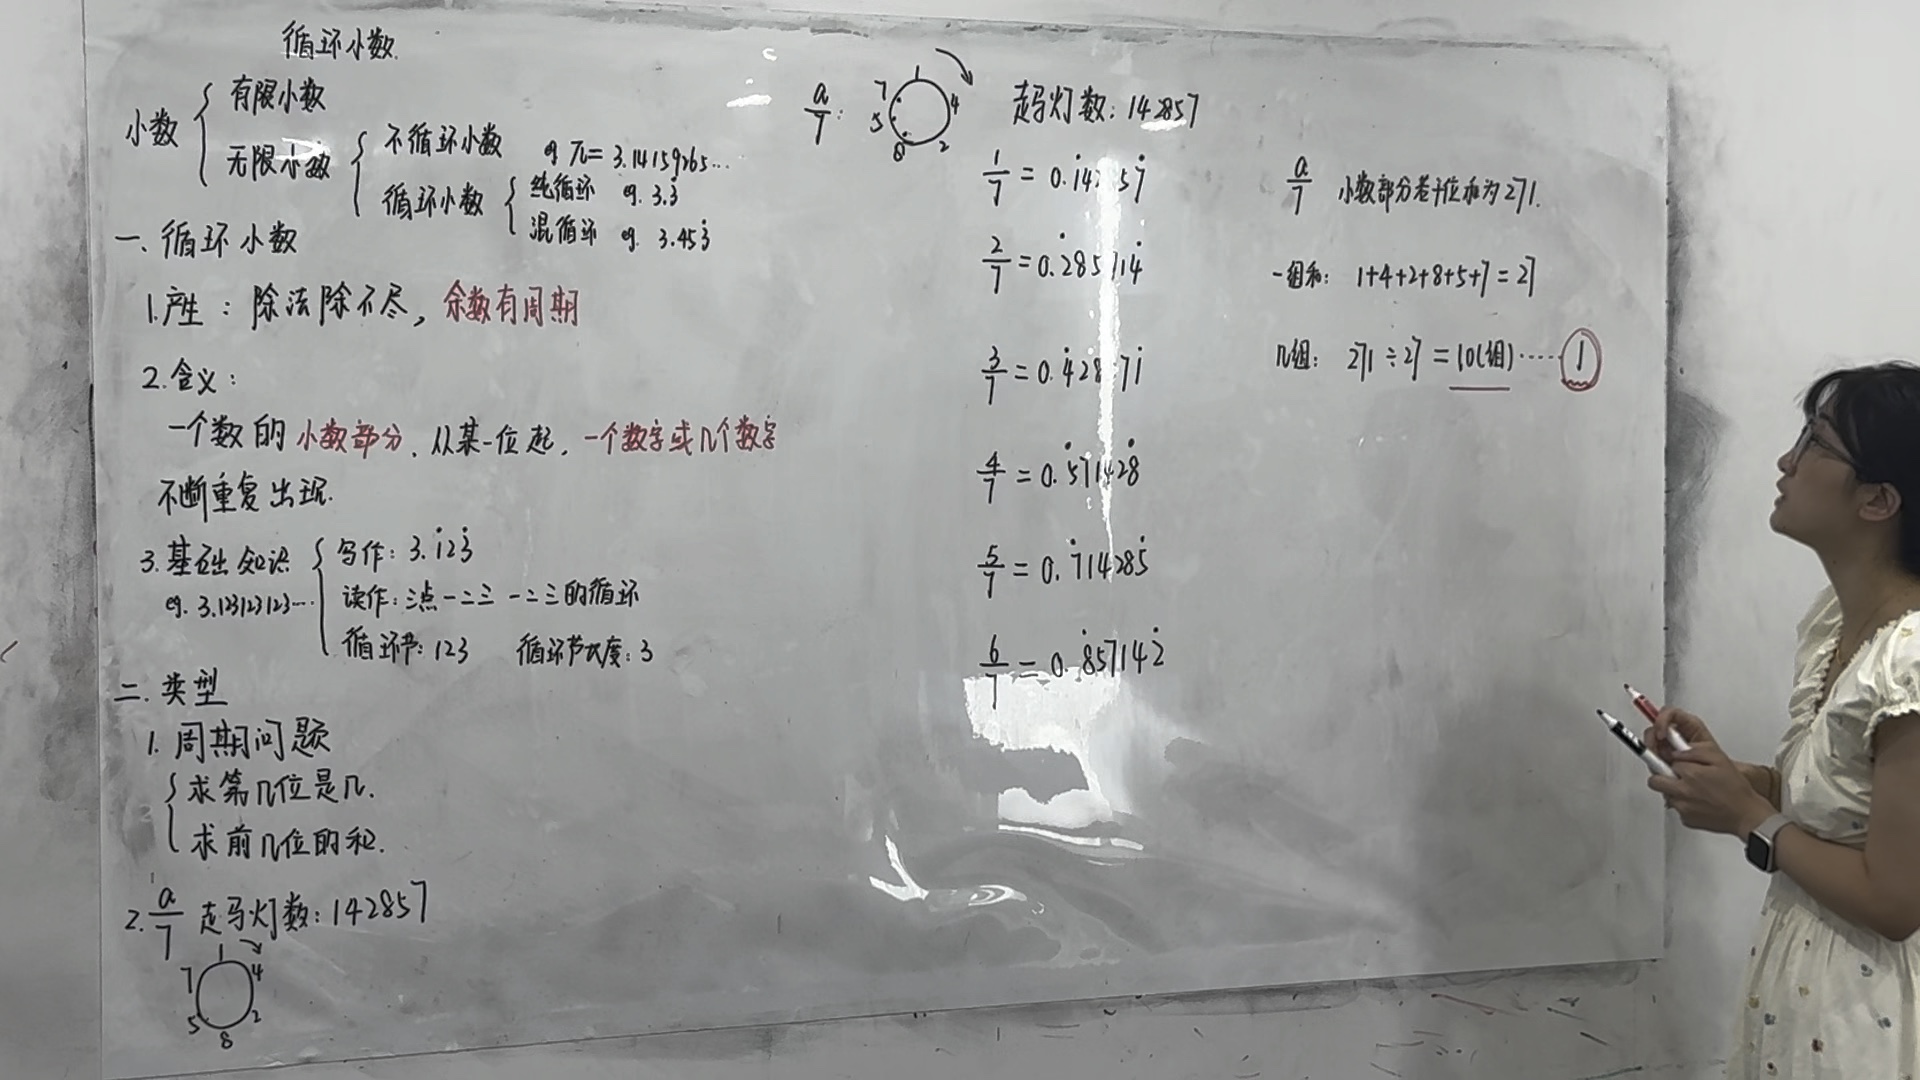 循环小数.
小数 { 有限小数
无限小数 { 不循环小数 eg π = 3.14159265...
循环小数 { 纯循环 eg. 3.3̇
混循环 eg. 3.453̇
一、循环小数
1.产生：除法除不尽，余数有周期
2.含义：
一个数的小数部分，从某一位起，一个数字或几个数字
不断重复出现.
3.基础知识 { 写作：3.1̇23̇
eg. 3.123123123... 读作：三点一二三 一二三的循环
循环节：123 循环节长度：3
二. 类型
1. 周期问题
{ 求第几位是几.
求前几位的和.
2. a/7 走马灯数：142857
1
7 4
5 2
8
a/7：
1
7 4
5 2
8
走马灯数：142857
1/7 = 0.1̇42 57̇
2/7 = 0.2̇85714̇
3/7 = 0.4̇28 71̇
4/7 = 0.5̇71428̇
5/7 = 0.7̇14285̇
6/7 = 0.8̇57142̇
a/7 小数部分若干位和为271.
一组和：1+4+2+8+5+7=27
几组：271÷27=10(组)……1